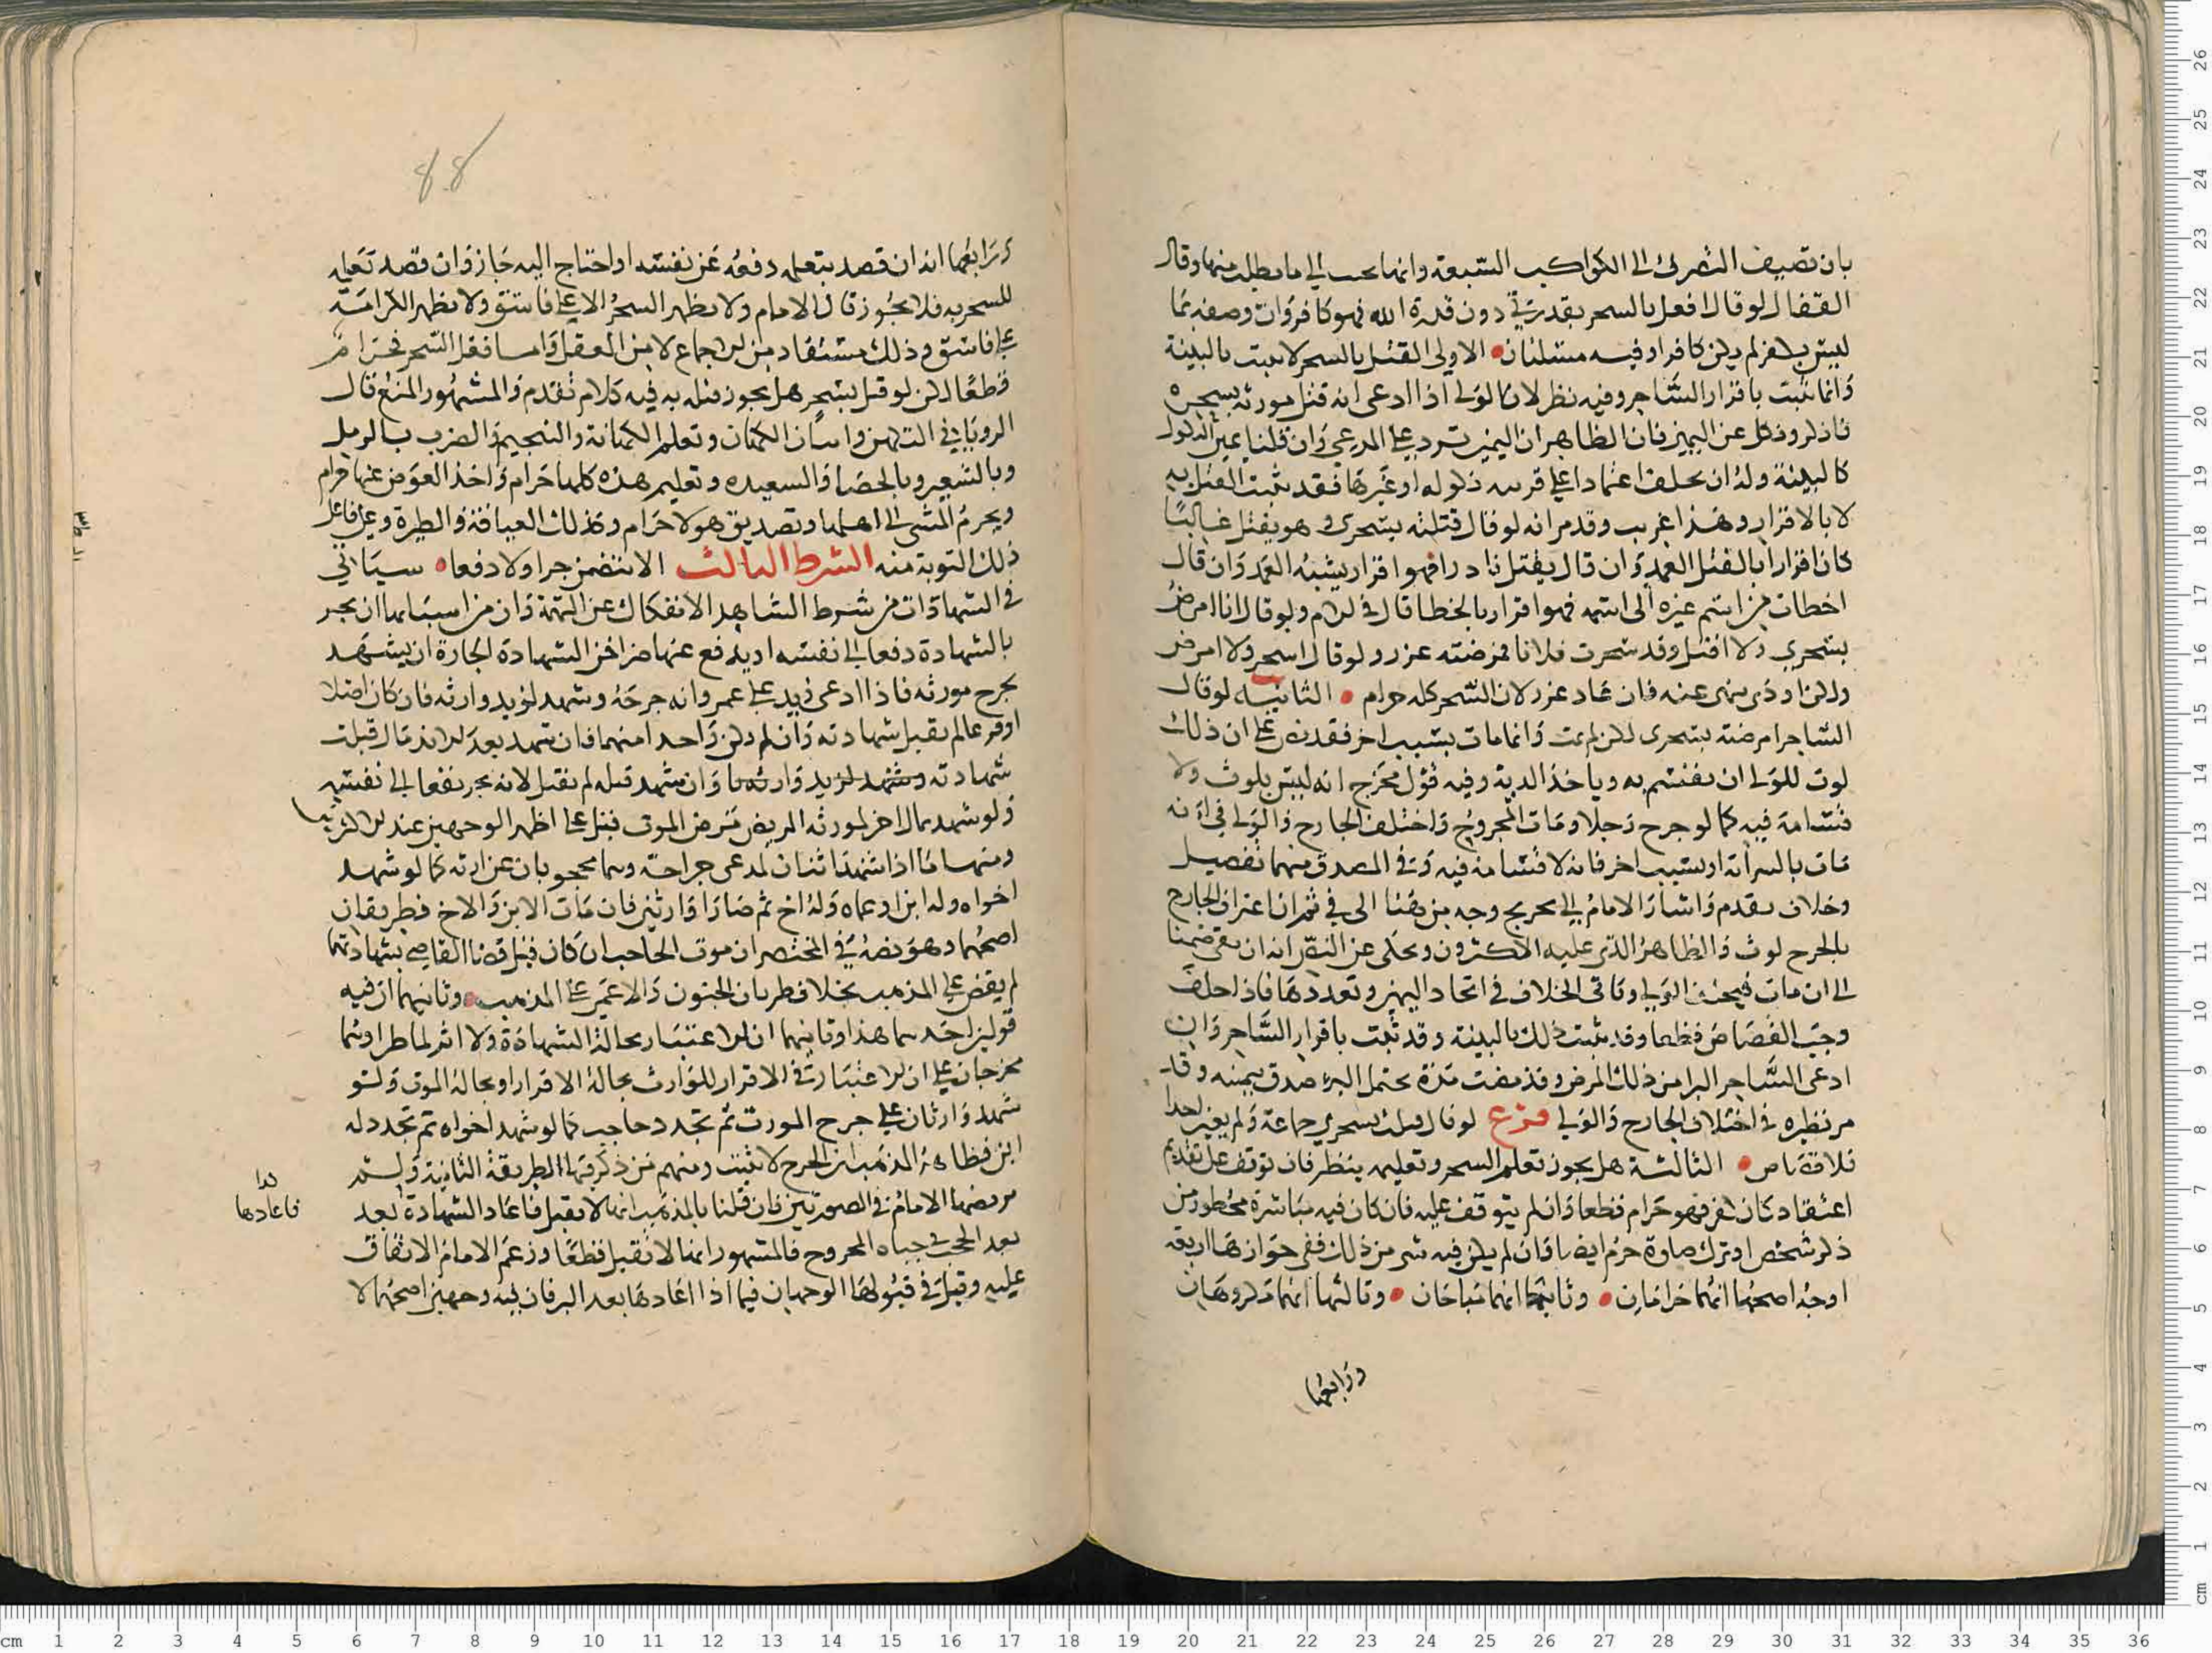 بان تضيف التصرف الى الكواكب السبعة وانها تجيب الى ما يطلب منها وقال
القفال لو قال افعل بالسحر بقدرتي دون قدرة الله فهو كافر وان وصفه بما
ليس بكفر لم يكن كافرا وفيه مسئلتان الاولى القتل بالسحر لا يثبت بالبينة
وانما يثبت باقرار الساحر وفيه نظر لان الولي اذا ادعى انه قتل مورثه بسحره
فانكر ونكل عن اليمين فان الظاهر ان اليمين ترد على المدعي وان قلنا يمين النكول
كالبينة وله ان يحلف اعتمادا على قرينه نكوله او غيرها فقد يثبت القتل به
لا بالاقرار وهذا غريب وقد مر انه لو قال قتلته بسحري وهو يقتل غالبا
كان اقرارا بالقتل العمد وان قال يقتل نادرا فهو اقرار بشبه العمد وان قال
اخطات من اسم غيره الى اسمه فهو اقرار بالخطا قال في الام ولو قال انا امرض
بسحري ولا اقتل وقد سحرت فلانا فمرضته عزر ولو قال اسحر ولا امرض
ولكن اوذي نهي عنه فان عاد عزر لان السحر كله حرام الثانية لو قال
الساحر امرضته بسحري لكن لم يمت وانما مات بسبب اخر فقد نص على ان ذلك
لوث للولي ان يقسم به وياخذ الدية وفيه قول مخرج انه ليس بلوث ولا
قسامة فيه كما لو جرح رجلا ومات المجروح واختلف الجارح والولي في انه
مات بالسراية او بسبب اخر فانه لا قسامة فيه وفي المصدق منهما تفصيل
وخلاف تقدم واشار الامام الى تخريج وجه من هنا الى في ثم ان اعتراف الجارح
بالجرح لوث والظاهر الذي عليه الاكثرون وحكي عن النص انه ان بقي ضمنا
الى ان مات فيحلف الولي وتاتي الخلاف في اتحاد اليمين وتعددها فاذا حلف
وجب القصاص قطعا وقد يثبت ذلك بالبينة وقد ثبت باقرار الساحر وان
ادعى الساحر البرا من ذلك المرض وقد مضت مدة يحتمل البرء صدق بيمينه وقد
مر نظيره في اختلاف الجارح والولي فرع لو قال قتلت بسحري جماعة ولم يعين احدا
فلا قصاص الثالثة هل يجوز تعلم السحر وتعليمه ينظر فان توقف على تقديم
اعتقاد كان كفر فهو حرام قطعا وان لم يتوقف عليه فان كان فيه مباشرة محظور من
ذكر شخص او ترك صلوة حرم ايضا وان لم يكن فيه شي من ذلك ففي جوازها اربعة
اوجه اصحها انهما حرامان وثانيها انهما مباحان وثالثها انهما مكروهان
ورابعها
ورابعها انه ان قصد بتعلمه دفعه عن نفسه او احتاج اليه جاز وان قصد تعلمه
للسحر به فلا يجوز قال الامام ولا يظهر السحر الا على فاسق ولا يظهر الكرامة
على فاسق وذلك مستفاد من الاجماع لا من العقل واما فعل السحر فحرام
قطعا لكن لو قتل بسحر هل يجوز قتله به فيه كلام تقدم والمشهور المنع قال
الروياني التكهن واتيان الكهان وتعلم الكهانة والتنجيم والضرب بالرمل
وبالشعير وبالحصا والشعبده وتعليم هذه كلها حرام واخذ العوض عنها حرام
ويحرم المشي الى اهلها وتصديق هولا حرام وكذلك العيافة والطيرة وعلى فاعل
ذلك التوبة منه الشرط الثالث الا يتضمن جرا ولا دفعا سياتي
في الشهادات من شرط الشاهد الانفكاك عن التهمة وان من اسبابها ان يجر
بالشهادة دفعا الى نفسه او يدفع عنها من اخر الشهادة الجارة ان يشهد
بجرح مورثه فاذا ادعى زيد على عمرو انه جرحه وشهد لزيد وارثه فان كان اصلا
او فرعا لم تقبل شهادته وان لم يكن واحدا منهما فان شهد بعد الاندمال قبلت
شهادته وشهد لزيد وارثه وان شهد قبله لم تقبل لانه يجر نفعا الى نفسه
ولو شهد بمال اخر لمورثه المريض مرض الموت قبل على اظهر الوجهين عند الاكثرين
ومنها ما اذا شهد اثنان لمدعي جراحة وهما محجوبان عن ارثه كما لو شهد
اخواه وله ابن او عماه وله اخ ثم صارا وارثين فان مات الابن والاخ فطريقان
اصحهما وهو نصه في المختصر ان موت الحاجب ان كان قبل قضا القاضي بشهادتهما
لم يقض على المذهب بخلاف طريان الجنون والاعمى على المذهب وثانيهما ان فيه
قولين احدهما هذا وثانيهما ان الاعتبار بحالة الشهادة ولا اثر لما طرا وهما
مخرجان على ان الاعتبار في الاقرار للوارث بحالة الاقرار او بحالة الموت ولو
شهد وارثان على جرح المورث ثم تجدد حاجب كما لو شهد اخواه ثم تجدد له
ابن فظاهر المذهب ان الجرح لا يثبت ومنهم من ذكر فيها الطريقة الثانية ولم
يرضها الامام في الصورتين فان قلنا بالمذهب انها لا تقبل فاعاد الشهادة بعد
بعد الحجب في حياة المجروح فالمشهور انها لا تقبل قطعا وزعم الامام الاتفاق
عليه وقيل في قبولها الوجهان فيما اذا اعادها بعد البر فان فيه وجهين اصحهما لا
كذا
فاعادها